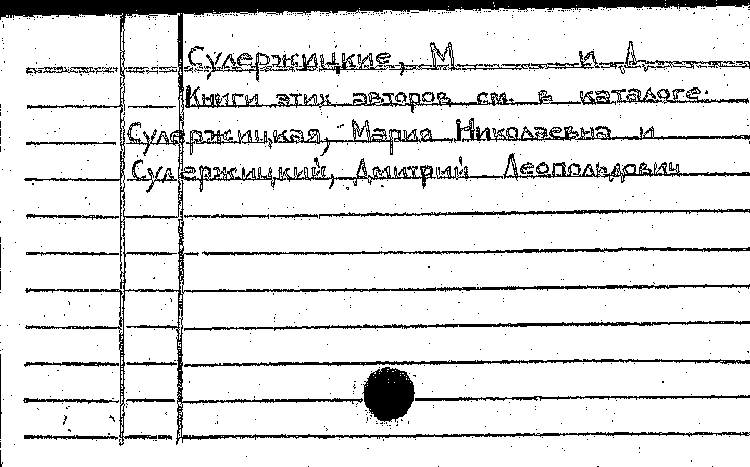 Сулержицкие, М и Д.
Книги этих авторов см. в каталоге:
Сулержицкая, Мария Николаевна и
Сулержицкий, Дмитрий Леопольдович